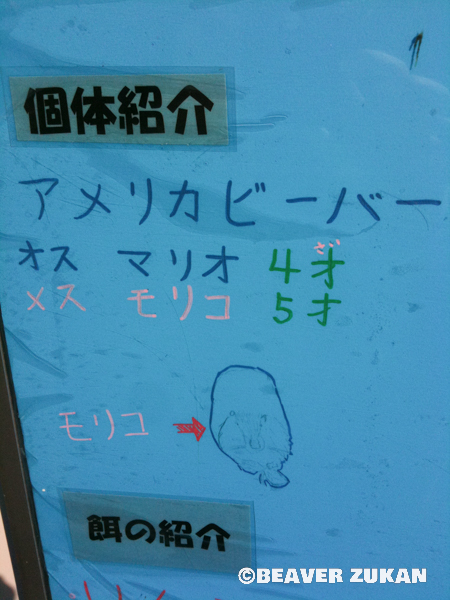 個体紹介
アメリカビーバー
オス マリオ 4才
メス モリコ 5才
モリコ
餌の紹介
©BEAVER ZUKAN